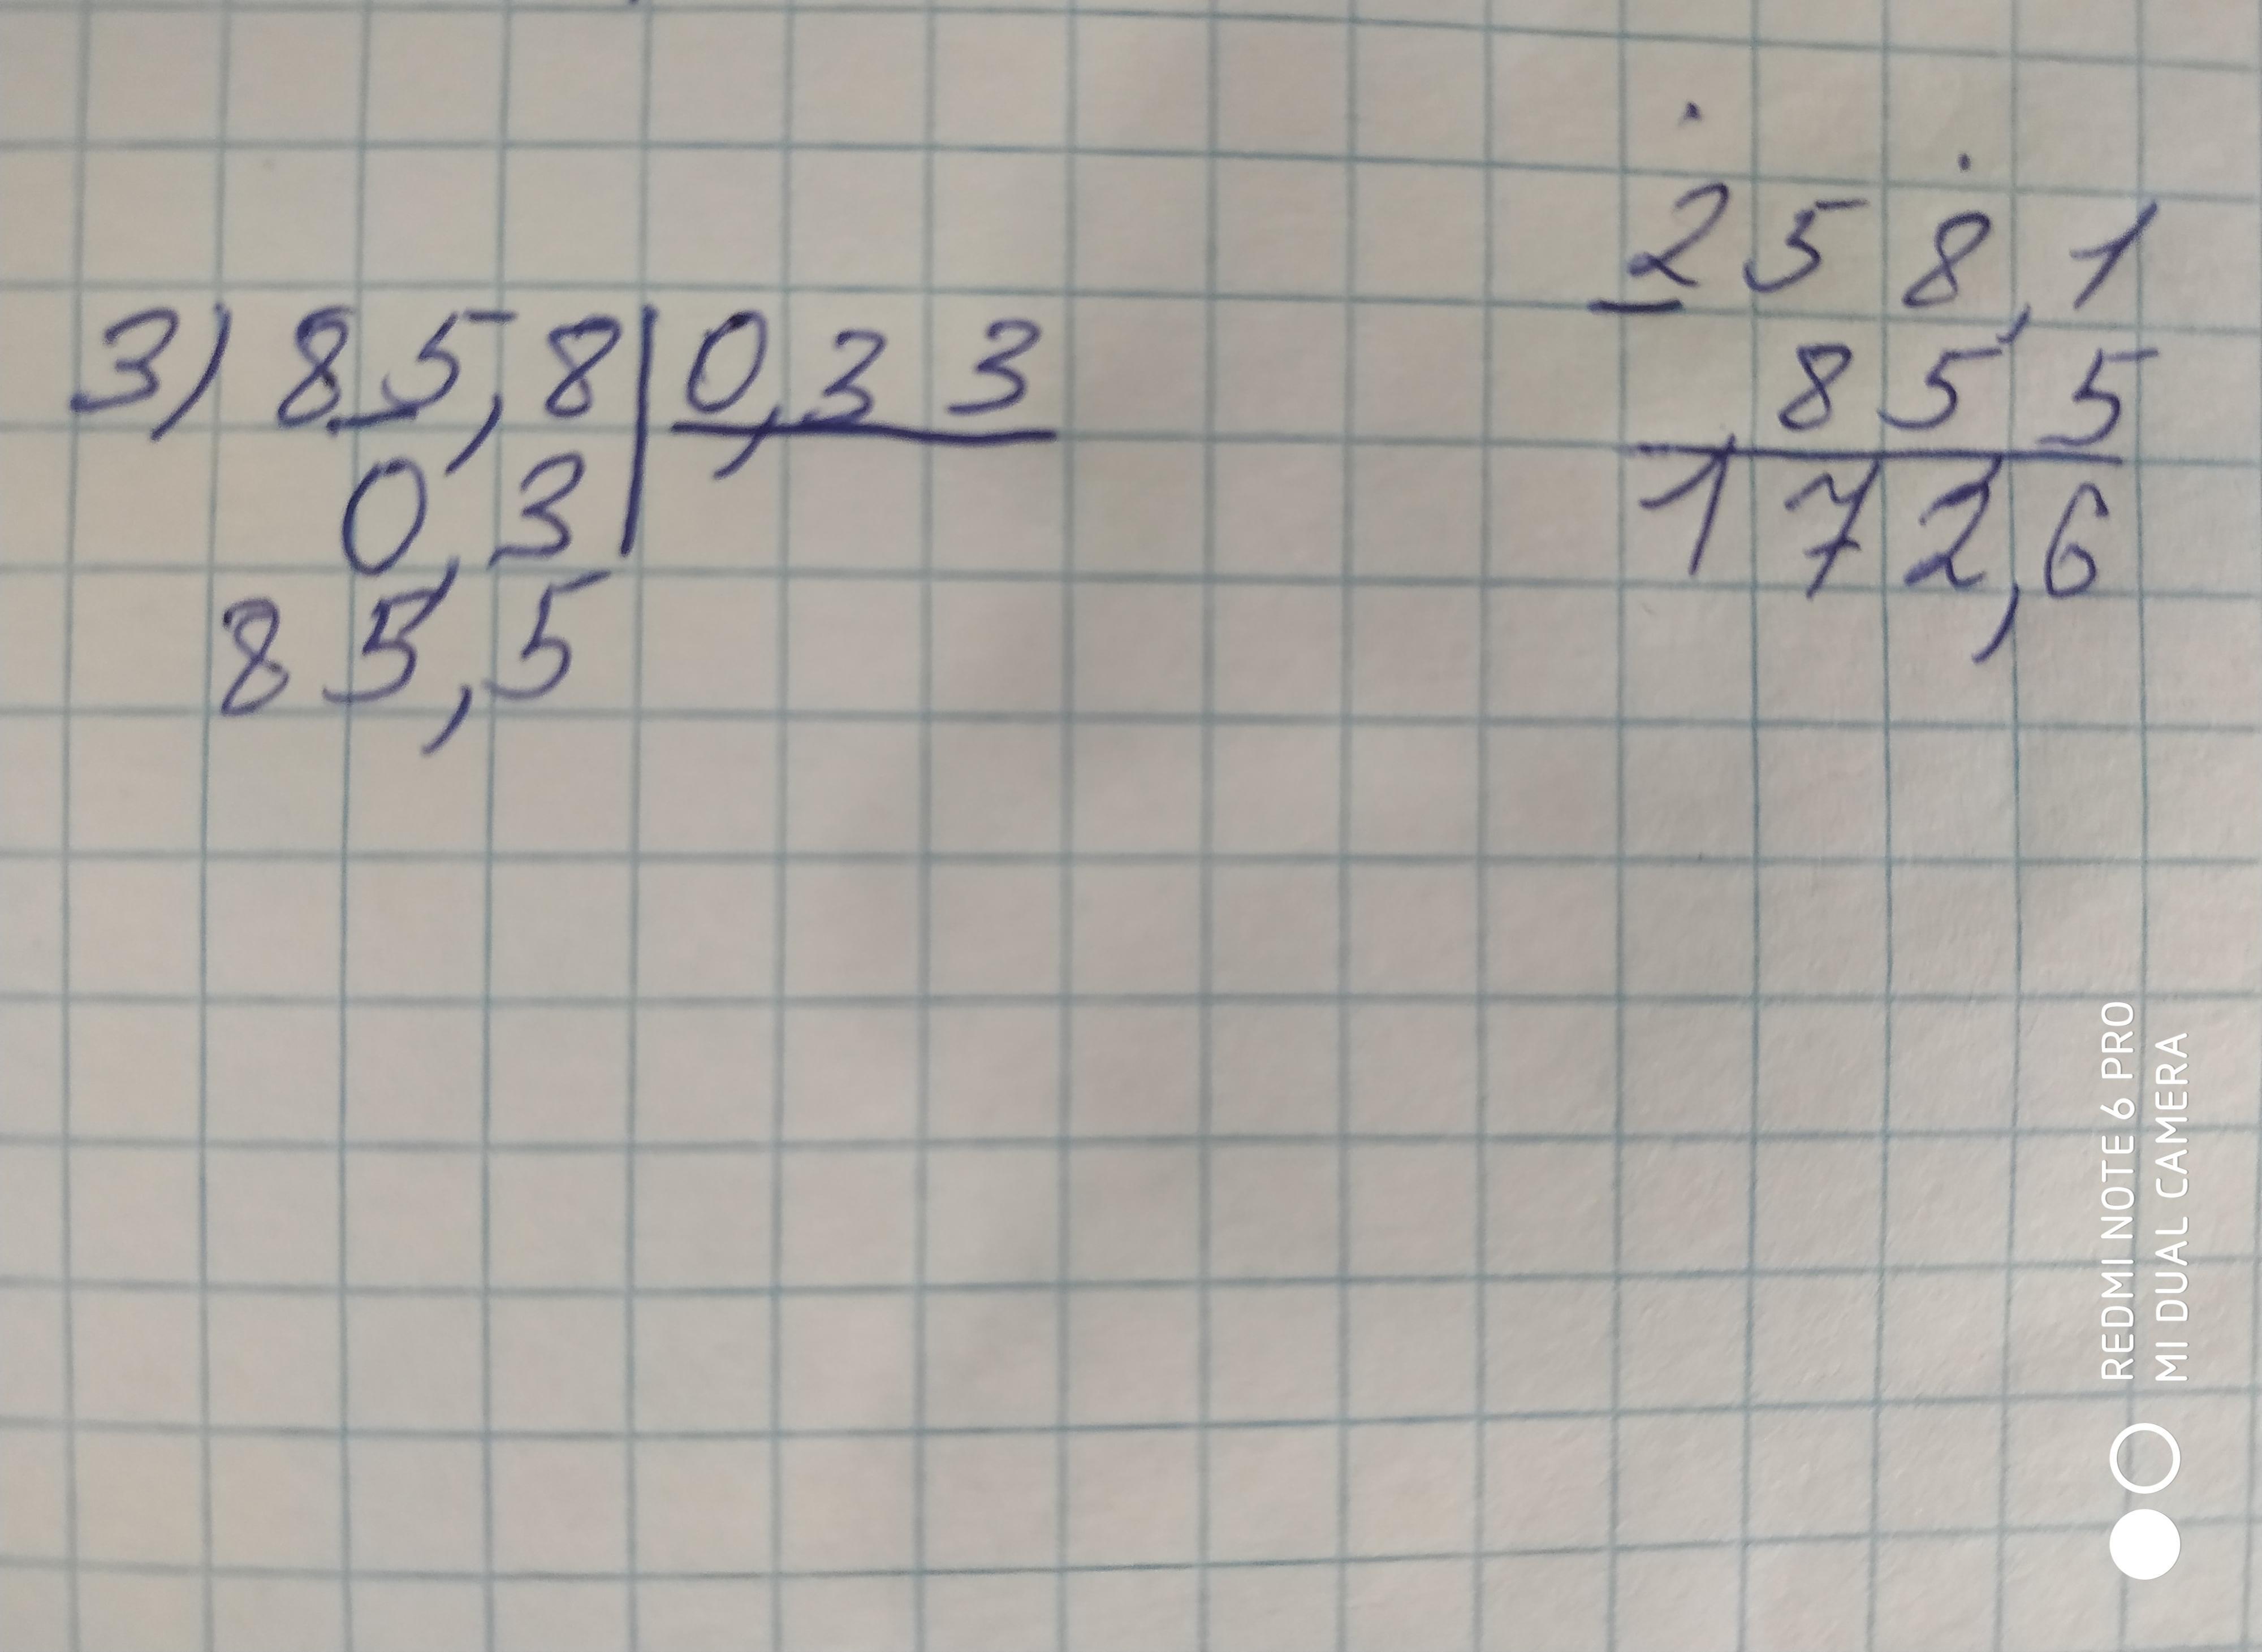 3) 85,8 | 0,33
0,3
85,5
258,1
85,5
172,6
REDMI NOTE 6 PRO
MI DUAL CAMERA